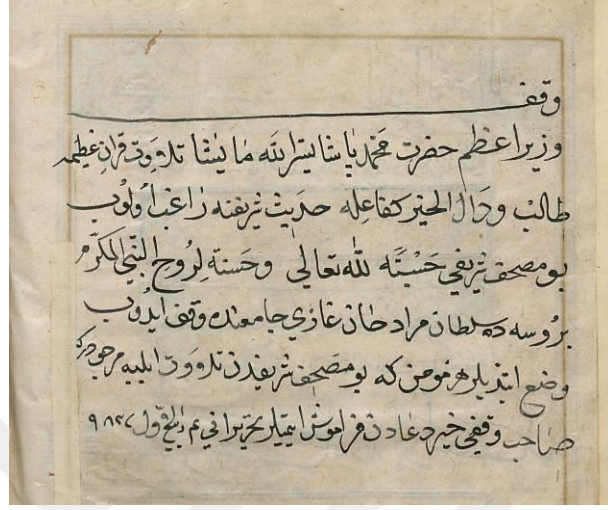 وقف
وزیر اعظم حضرت محمد پاشا یسر الله ما یشا تلاوت قران عظیمه
طالب و دال الخیر کفاعله حدیث شریفنه راغب اولوب
بو مصحف شریفی حسبتًه لله تعالی وحسنة لروح النبی المکرم
بروسه ده سلطان مراد خان غازی جامعنده وقف ایدوب
وضع ایتدیلر هر مومن که بو مصحف شریفدن تلاوت ایلیه مرجودرکه
صاحب وقفی خیر دعادن فراموش ایتمیلر تحریرا فی